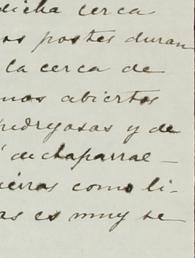 dicha cerca
os postes duran
la cerca de
nos abiertos
pedregosas y de
de chaparral -
como li-
as es muy se